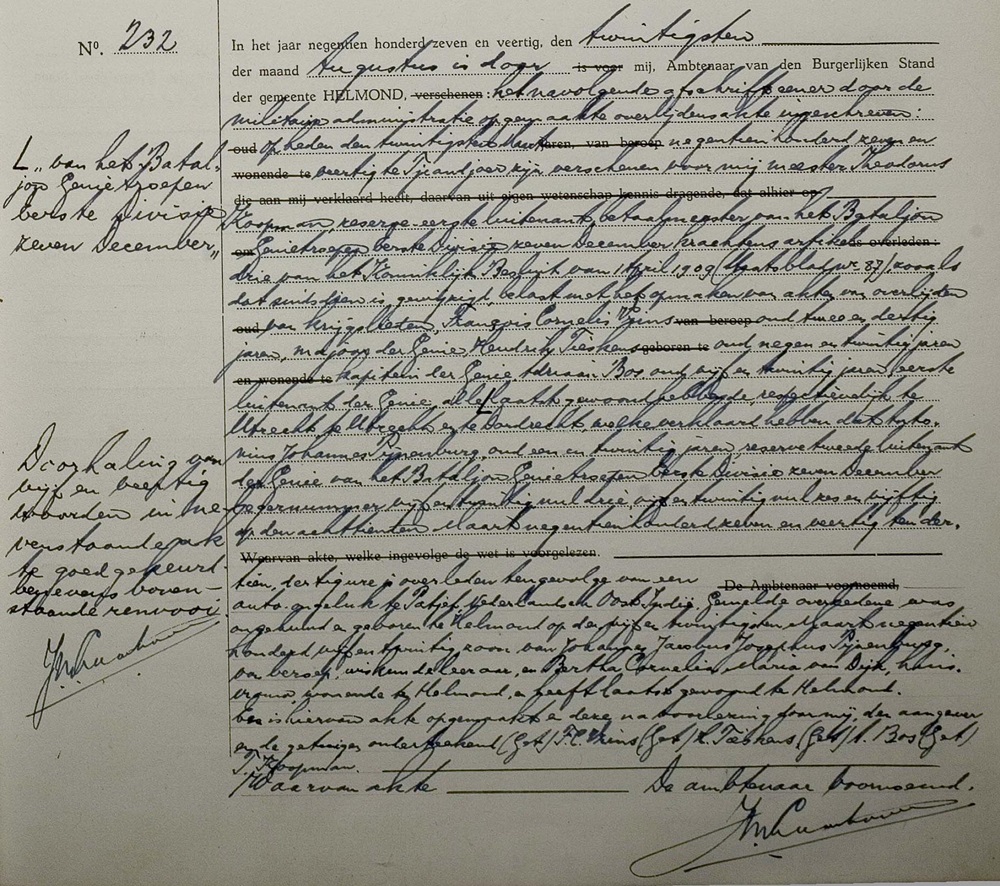 Nº. 232
In het jaar negentien honderd zeven en veertig, den twintigsten
der maand Augustus is door is voor mij, Ambtenaar van den Burgerlijken Stand
der gemeente HELMOND, verschenen: het navolgende afschrift eener door de
militaire administratie opgemaakte overlijdensakte ingeschreven:
oud op heden den twintigsten Maart jaren, van beroep negentien honderd zeven en
wonende te veertig te Tjiandjoer zijn verschenen voor mij meester Theodorus
die aan mij verklaard heeft, daarvan uit eigen wetenschap kennis dragende, dat alhier op
Koopman, reserve eerste luitenant betaalmeester van het Bataljon
om Genietroepen eerste Divisie zeven December krachtens artikel is overleden:
drie van het Koninklijk Besluit van 1 April 1909 (Staatsblad nr. 87), zooals
dat sindsdien is gewijzigd, belast met het opmaken van akten van overlijden
oud van krijgslieden, François Cornelis Vrins van beroep oud twee en dertig
jaren, majoor der Genie, Hendrik Tieskens geboren te oud negen en twintig jaren
en wonende te kapitein der Genie Adriaan Bos oud vijf en twintig jaren eerste
luitenant der Genie, allen laatst gewoond hebbende, respectievelijk te
Utrecht, te Utrecht en te Dordrecht, welke verklaard hebben dat Anto-
nius Johannes Pijnenburg, oud een en twintig jaren, reserve tweede luitenant
der Genie van het Bataljon Genietroepen eerste Divisie zeven December
legernummer vijf en twintig nul drie vijf en twintig nul zes en vijftig
op den achttienden Maart negentien honderd zeven en veertig ten der-
Waarvan akte, welke ingevolge de wet is voorgelezen.
De Ambtenaar voornoemd,
tien, dertig ure is overleden tengevolge van een
auto-ongeluk te Patjet, Nederlandsch Oost Indië. Gemelde overledene was
ongehuwd en geboren te Helmond op den vijf en twintigsten Maart negentien
honderd vijf en twintig, zoon van Johannes Jacobus Josephus Pijnenburg,
van beroep wiskundeleeraar, en Bertha Cornelia Maria van Dijk, huis-
vrouw, wonende te Helmond, en heeft laatst gewoond te Helmond.
En is hiervan akte opgemaakt en deze na voorlezing door mij, den aangever
en de getuigen onderteekend (Get) F.C. Vrins (Get) H. Tieskens (Get) A. Bos (Get)
T. Koopman.
Waarvan akte
De ambtenaar voornoemd.
L „ van het Batal-
jon Genietroepen
eerste Divisie
zeven December „
Doorhaling van
vijf en veertig
woorden in ne-
venstaande ak-
te goedgekeurd
benevens boven-
staande renvooi